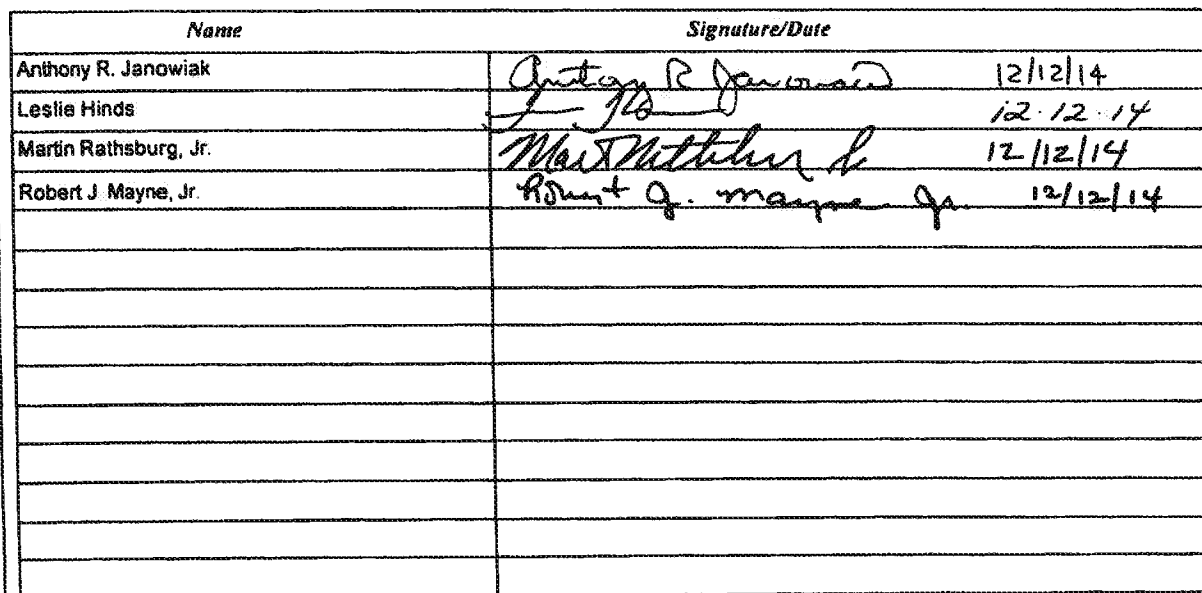 Name Signature/Date
Anthony R. Janowiak Anthony R Janowiak 12/12/14
Leslie Hinds 12.12.14
Martin Rathsburg, Jr. 12/12/14
Robert J. Mayne, Jr. Robert J. Mayne Jr. 12/12/14